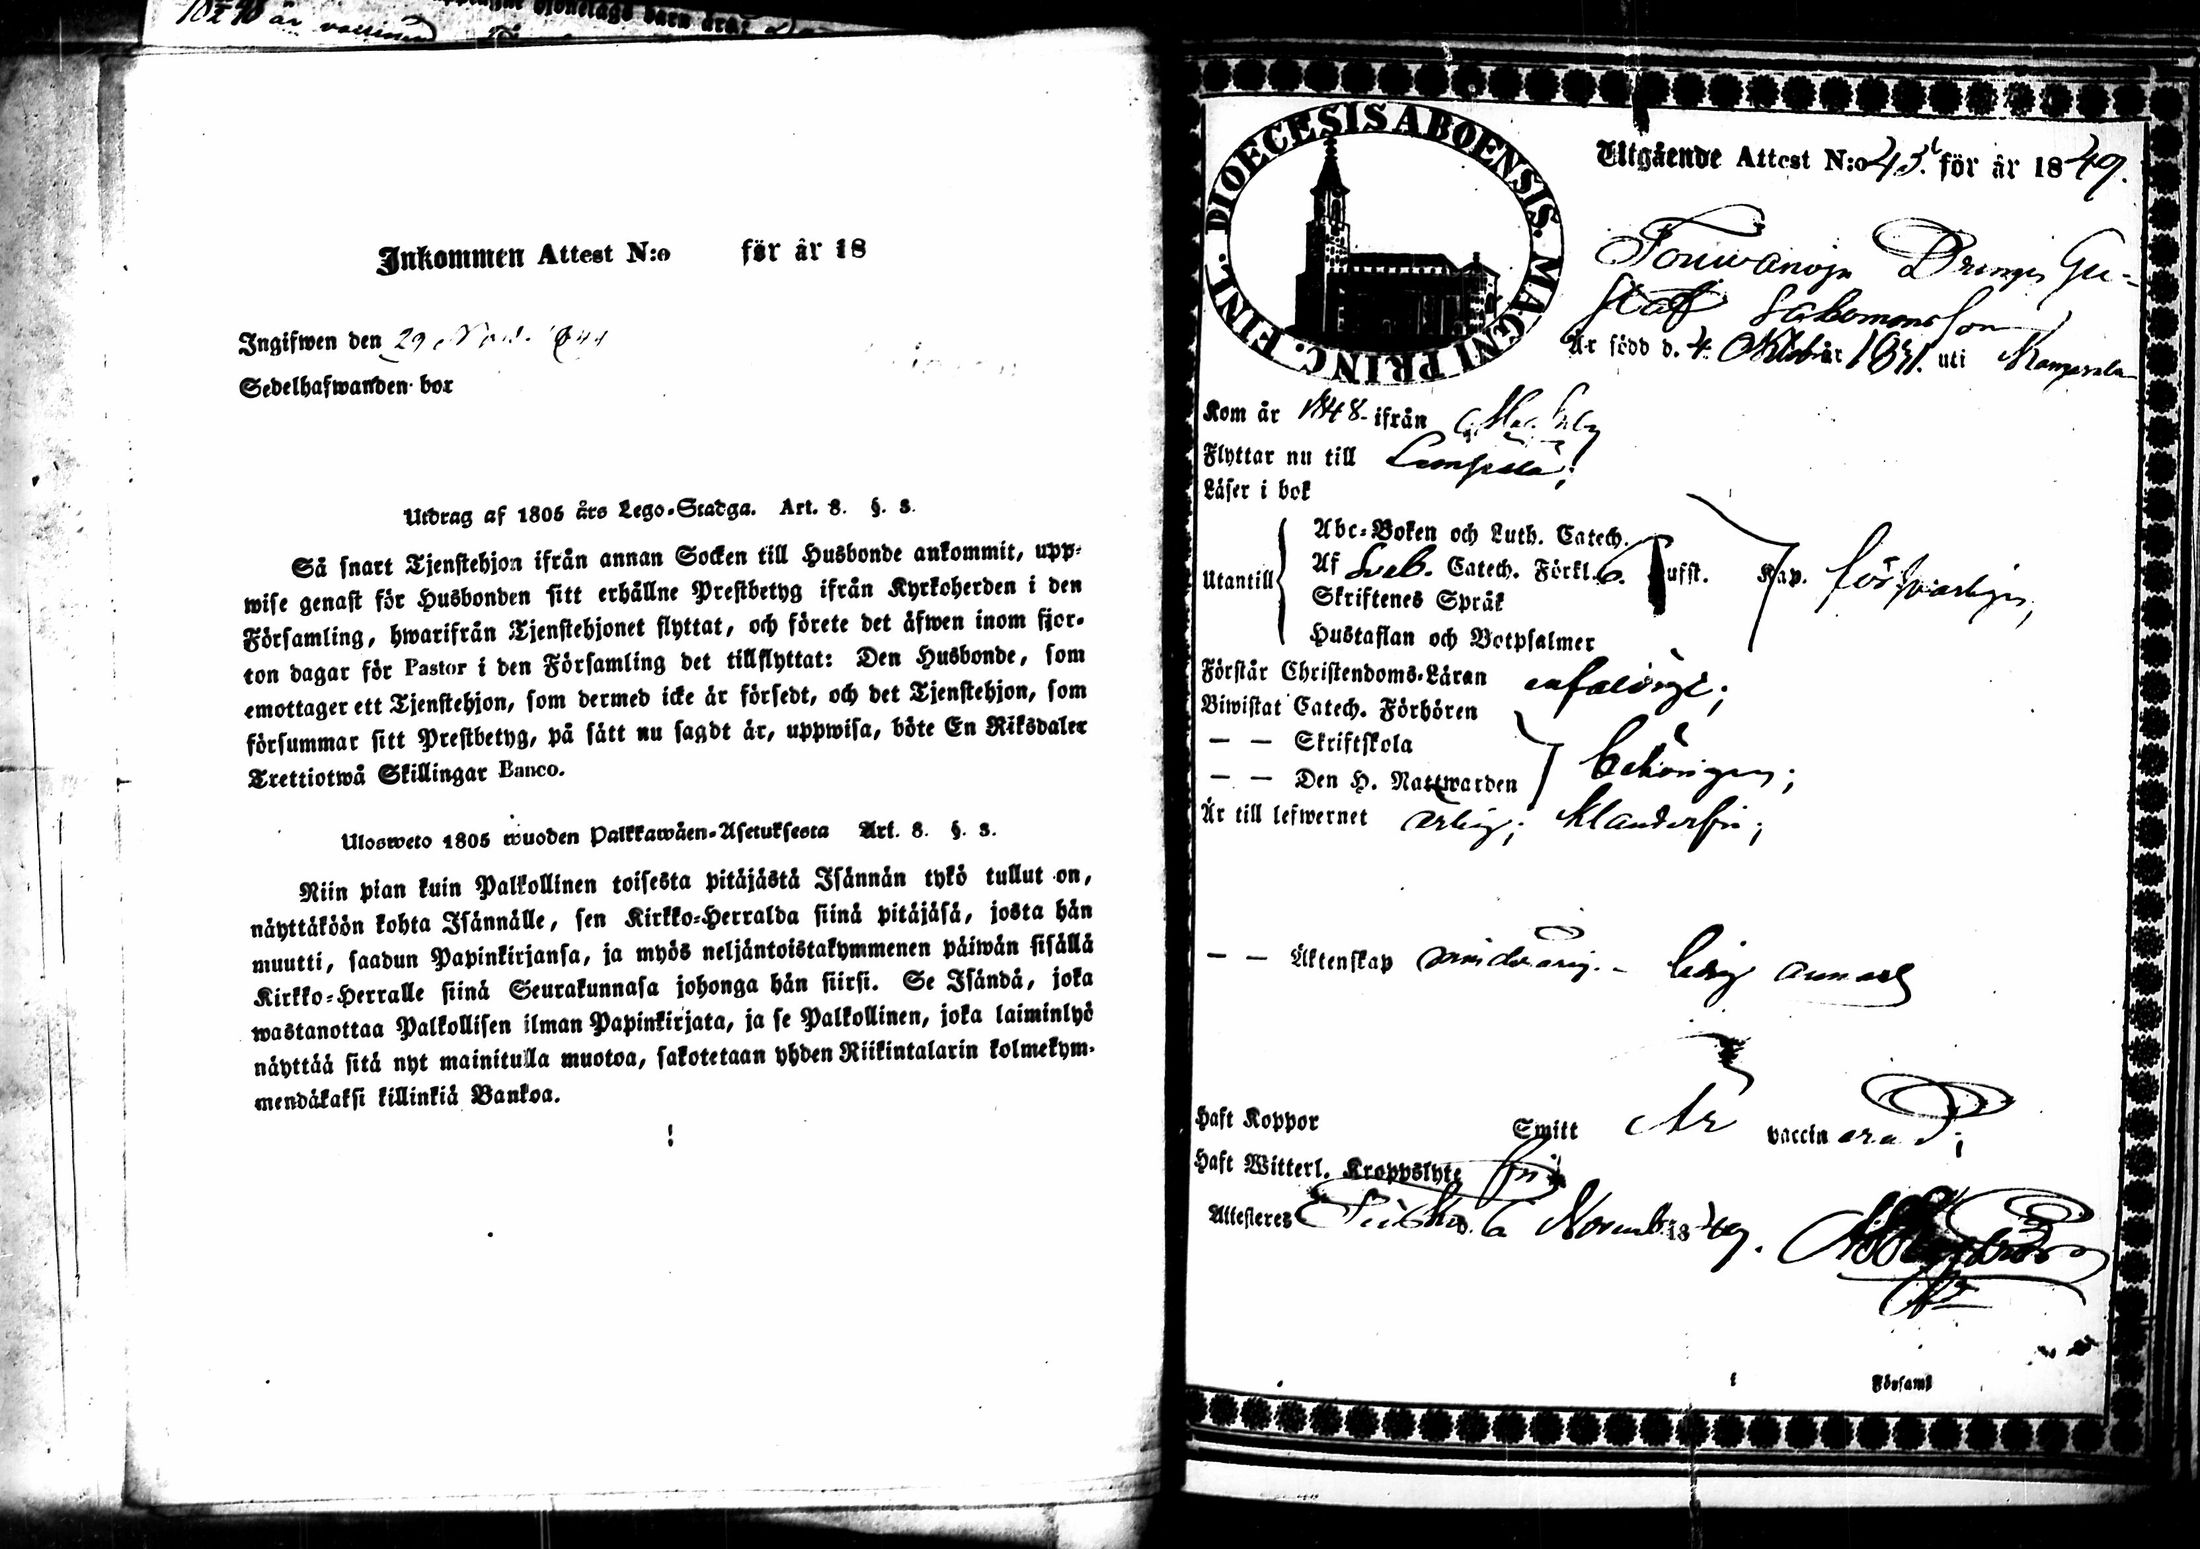 är
Inkommen Attest N:o för år 18
Ingifwen den 29 Nov.
Sedelhafwanden bor
Utdrag af 1805 års Lego-Stadga. Art. 8. §. 3.
Så snart Tjenstehjon ifrån annan Socken till Husbonde ankommit, upp-
wise genast för Husbonden sitt erhållne Prestbetyg ifrån Kyrkoherden i den
Församling, hwarifrån Tjenstehjonet flyttat, och förete det äfwen inom fjor-
ton dagar för Pastor i den Församling det tillflyttat: Den Husbonde, som
emottager ett Tjenstehjon, som dermed icke är försedt, och det Tjenstehjon, som
försummar sitt Prestbetyg, på sätt nu sagdt är, uppwisa, böte En Riksdaler
Trettiotwå Skillingar Banco.
Ulosweto 1805 wuoden Palkkawäen-Asetuksesta Art. 8. §. 3.
Niin pian kuin Palkollinen toisesta pitäjästä Isännän tykö tullut on,
näyttäköön kohta Isännälle, sen Kirkko-Herralda siinä pitäjäsä, josta hän
muutti, saadun Papinkirjansa, ja myös neljäntoistakymmenen päiwän sisällä
Kirkko-Herralle siinä Seurakunnasa johonga hän siirsi. Se Isändä, joka
wastanottaa Palkollisen ilman Papinkirjata, ja se Palkollinen, joka laiminlyö
näyttää sitä nyt mainitulla muotoa, sakotetaan yhden Riikintalarin kolmekym-
mendäkaksi killinkiä Bankoa.
DIOECESIS ABOENSIS. MAGNI PRINC. FINL.
Utgående Attest N:o 45. för år 1849.
Drengen Gu-
staf Salomonsson
Är född d. 4 Oktober 1831. uti Kangasala
Kom år 1848 ifrån
Flyttar nu till Lempäla;
Läser i bok
Utantill
Abc-Boken och Luth. Catech.
Af Sveb. Catech. Förkl. 6. Hufst. Kap. försvarligen,
Skriftenes Språk
Hustaflan och Botpsalmer
Förstår Christendoms-Läran enfaldigt;
Biwistat Catech. Förhören
— — Skriftskola
— — Den H. Nattwarden behörigen;
Är till lefwernet ärlig; klanderfri;
— — Äktenskap minderårig.
Haft Koppor Smitt Är vaccinerad;
Haft Witterl. Kroppslyte fri
Attesteres d. 6 Novemb. 1849.
Församl